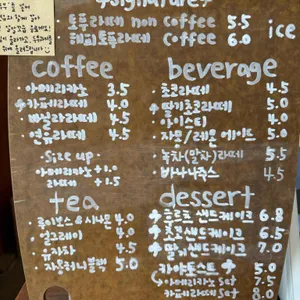 *Signature*
토푸라떼 non coffee 5.5
테피토푸라떼 coffee 6.0
ice
coffee
아메리카노 3.5
카페라떼 4.0
바닐라라떼 4.5
연유라떼 4.5
Size up
아메리카노 +1.0
라떼 +1.5
beverage
초코라떼 4.5
딸기초코라떼 5.0
아이스티 4.0
자몽/레몬 에이드 5.0
녹차(말차)라떼 5.5
바나나쥬스 4.5
tea
루이보스&시나몬 4.0
얼그레이 4.0
유자차 4.5
자몽허니블랙 5.0
dessert
후르츠 샌드케이크 6.8
초코 샌드케이크 6.5
딸기 샌드케이크 7.0
카야토스트 5.0
아메리카노 set 7.5
카페라떼 set 8.0